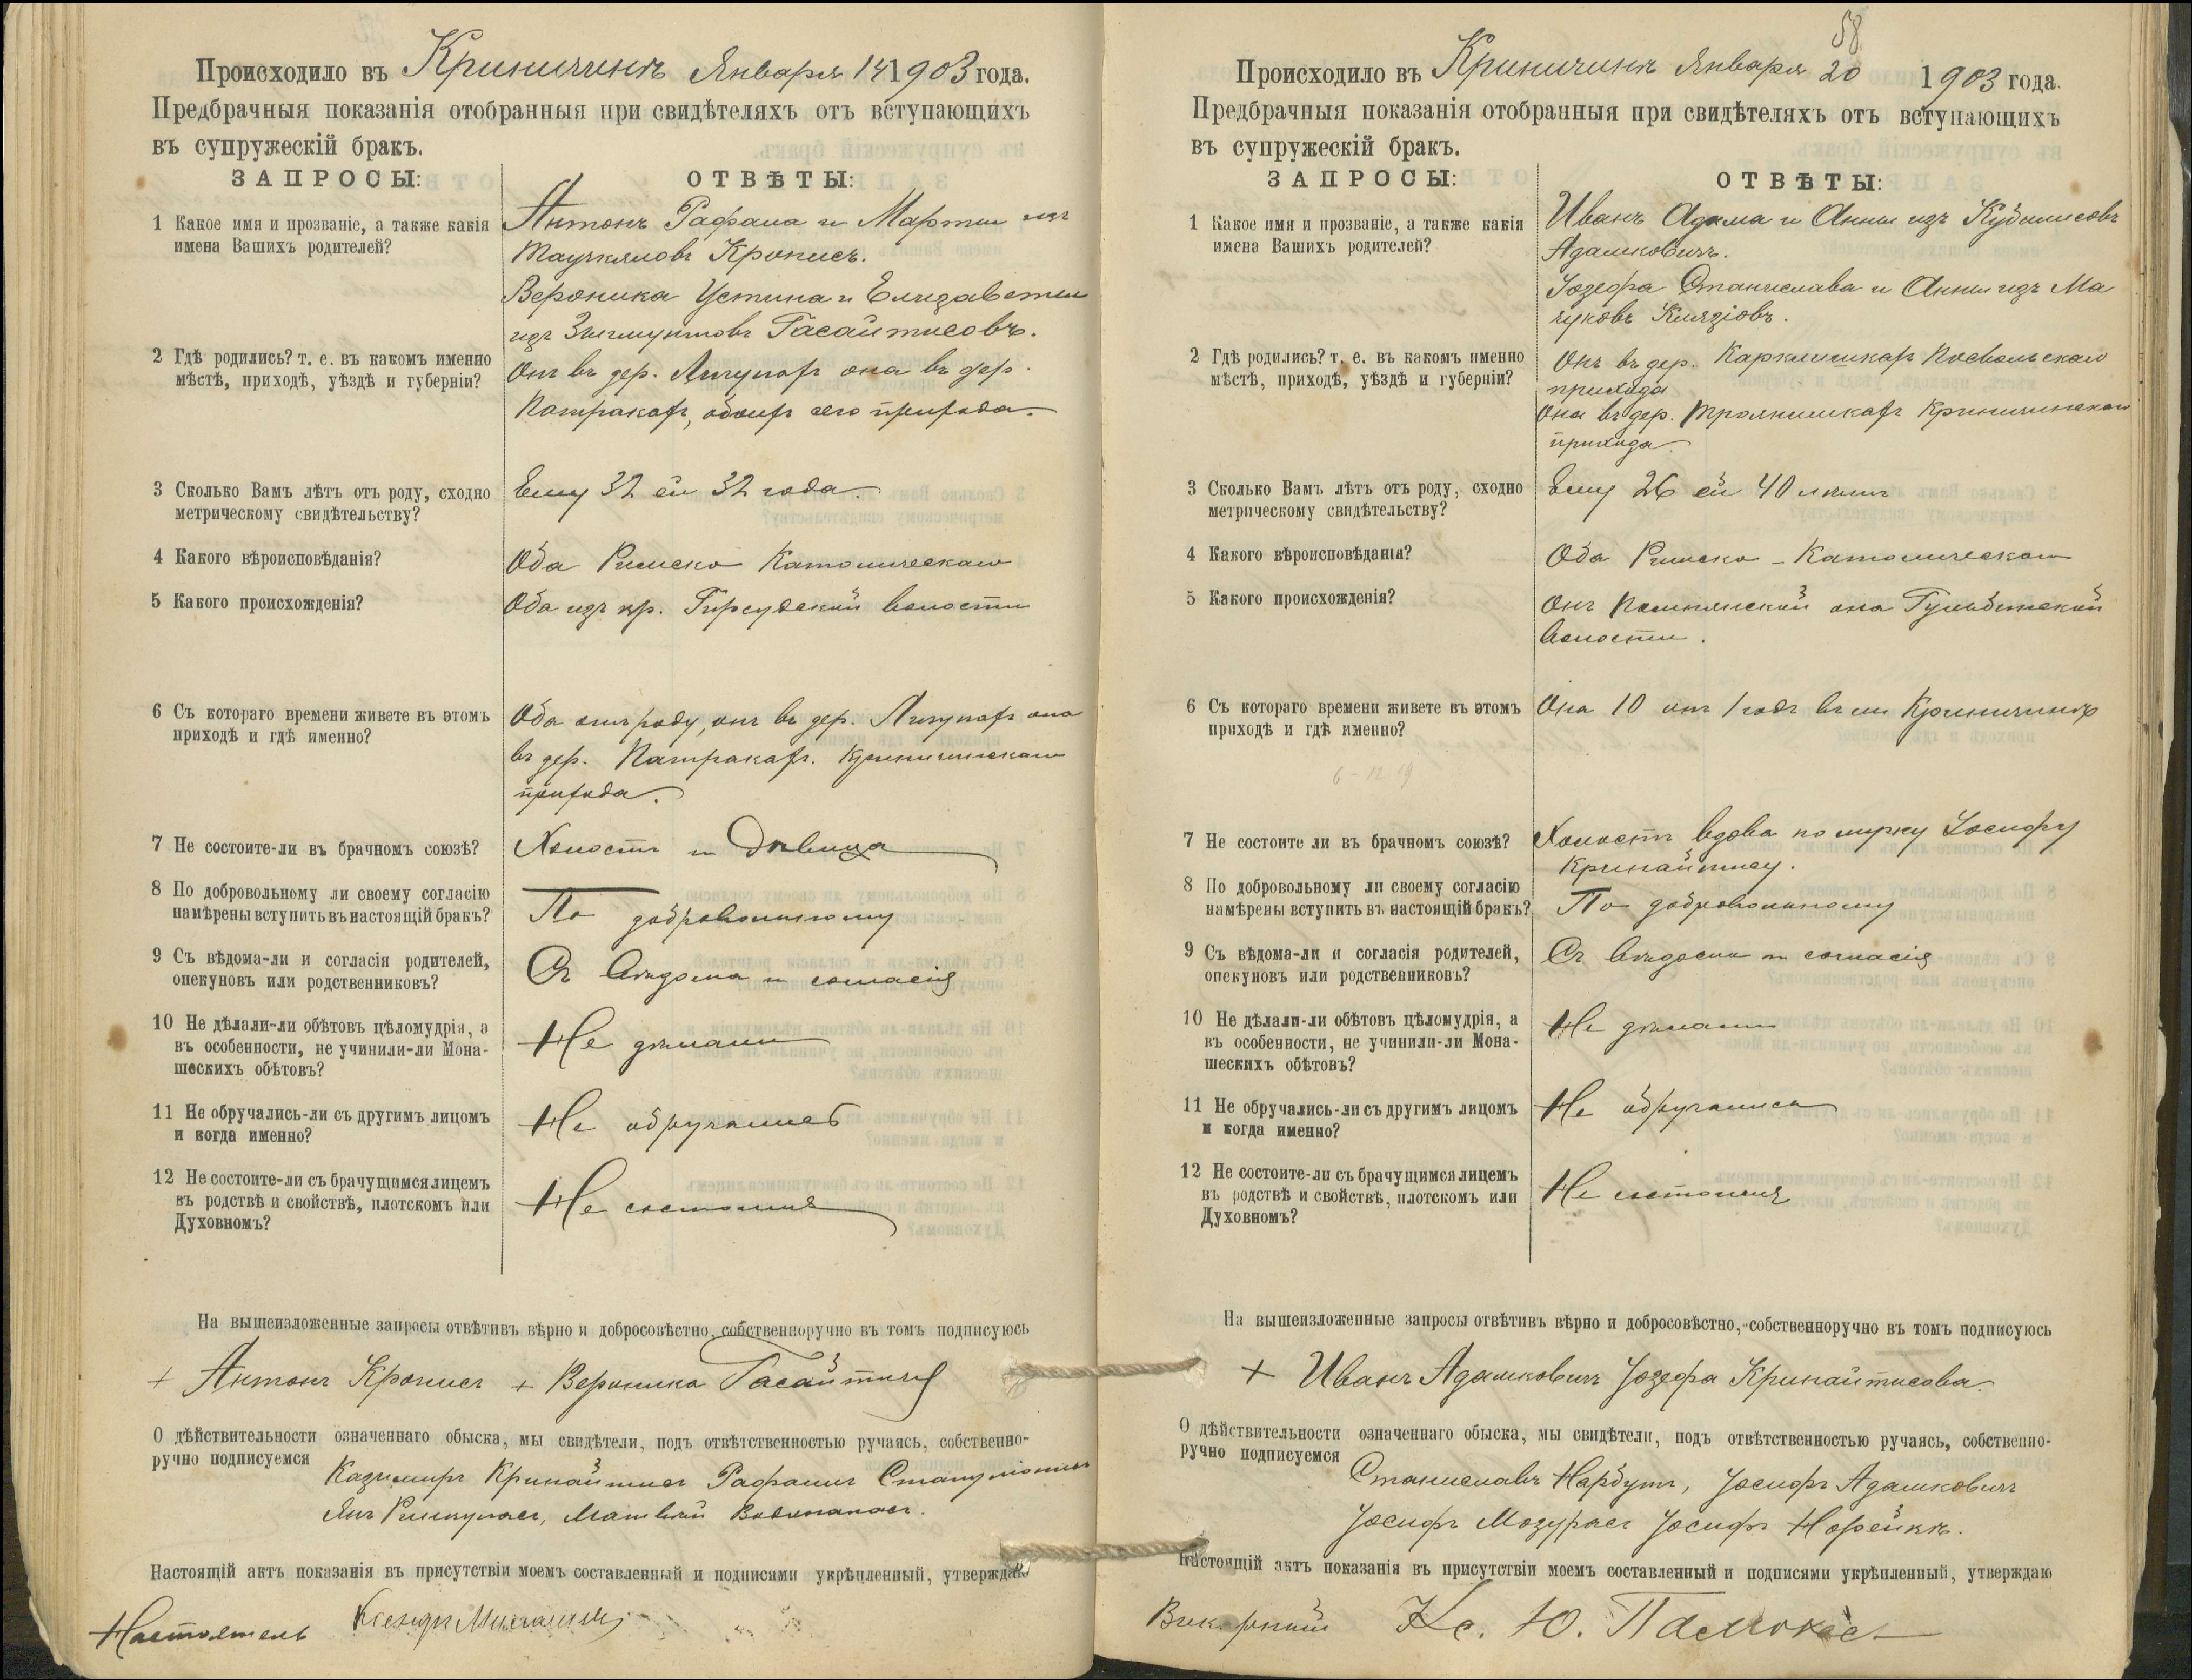 Происходило въ Криничинѣ Января 14 1903 года.
Предбрачныя показанія отобранныя при свидѣтеляхъ отъ вступающихъ
въ супружескій бракъ.
ЗАПРОСЫ:
ОТВѢТЫ:
1 Какое имя и прозваніе, а также какія
имена Вашихъ родителей?
Антонъ Рафаила и Марты изъ
Кронисъ.
Вероника Устина и Елизаветы
изъ Зыгмунтовъ Гасайтисовъ.
2 Гдѣ родились? т. е. въ какомъ именно
мѣстѣ, приходѣ, уѣздѣ и губерніи?
Онъ въ дер. она въ дер.
Патракахъ, обоихъ сего прихода.
3 Сколько Вамъ лѣтъ отъ роду, сходно
метрическому свидѣтельству?
Ему 32 ей 32 года.
4 Какого вѣроисповѣданія?
Оба Римско Католическаго
5 Какого происхожденія?
Оба изъ кр. Гирсудской волости
6 Съ котораго времени живете въ этомъ
приходѣ и гдѣ именно?
Оба отъ роду, онъ въ дер. она
въ дер. Патракахъ. Криничинскаго
прихода.
7 Не состоите-ли въ брачномъ союзѣ?
Холостъ и Дѣвица
8 По добровольному ли своему согласію
намѣрены вступить въ настоящій бракъ?
По добровольному
9 Съ вѣдома-ли и согласія родителей,
опекуновъ или родственниковъ?
Съ вѣдома и согласія
10 Не дѣлали-ли обѣтовъ цѣломудрія, а
въ особенности, не учинили-ли Мона-
шескихъ обѣтовъ?
Не дѣлали
11 Не обручались-ли съ другимъ лицомъ
и когда именно?
Не обручались
12 Не состоите-ли съ брачущимся лицемъ
въ родствѣ и свойствѣ, плотскомъ или
Духовномъ?
Не состоимъ
На вышеизложенные запросы отвѣтивъ вѣрно и добросовѣстно, собственноручно въ томъ подписуюсь
+ Антонъ Кронисъ + Вероника Гасайтисъ
О дѣйствительности означеннаго обыска, мы свидѣтели, подъ отвѣтственностью ручаясь, собственно-
ручно подписуемся
Казимиръ Кринайтисъ Рафаилъ
Янъ Римкунасъ, Матвѣй
Настоящій актъ показанія въ присутствіи моемъ составленный и подписами укрѣпленный, утверждаю
Настоятель Ксендзъ
58
Происходило въ Криничинѣ Января 20 1903 года.
Предбрачныя показанія отобранныя при свидѣтеляхъ отъ вступающихъ
въ супружескій бракъ.
ЗАПРОСЫ:
ОТВѢТЫ:
1 Какое имя и прозваніе, а также какія
имена Вашихъ родителей?
Иванъ Адама и Анны изъ Кубилисовъ
Адамковичъ.
Іозефа Станислава и Анны изъ Ма
2 Гдѣ родились? т. е. въ какомъ именно
мѣстѣ, приходѣ, уѣздѣ и губерніи?
Онъ въ дер. Карклишкахъ Посвольскаго
прихода
Она въ дер. Троянишкахъ Криничинскаго
прихода.
3 Сколько Вамъ лѣтъ отъ роду, сходно
метрическому свидѣтельству?
Ему 26 ей 40 лѣтъ
4 Какого вѣроисповѣданія?
Оба Римско-Католическаго
5 Какого происхожденія?
Онъ она
волости.
6 Съ котораго времени живете въ этомъ
приходѣ и гдѣ именно?
Она 10 онъ 1 годъ въ м. Криничинѣ
6-12 19
7 Не состоите ли въ брачномъ союзѣ?
Холостъ вдова по мужу Іосифу
Кринайтису.
8 По добровольному ли своему согласію
намѣрены вступить въ настоящій бракъ?
По добровольному
9 Съ вѣдома-ли и согласія родителей,
опекуновъ или родственниковъ?
Съ вѣдома и согласія
10 Не дѣлали-ли обѣтовъ цѣломудрія, а
въ особенности, не учинили-ли Мона-
шескихъ обѣтовъ?
Не дѣлали
11 Не обручались-ли съ другимъ лицомъ
и когда именно?
Не обручались
12 Не состоите-ли съ брачущимся лицемъ
въ родствѣ и свойствѣ, плотскомъ или
Духовномъ?
Не состоимъ
На вышеизложенные запросы отвѣтивъ вѣрно и добросовѣстно, собственноручно въ томъ подписуюсь
+ Иванъ Адамковичъ Іозефа Кринайтисова.
О дѣйствительности означеннаго обыска, мы свидѣтели, подъ отвѣтственностью ручаясь, собственно-
ручно подписуемся
Станиславъ Нарбутъ, Іосифъ Адамковичъ
Іосифъ Мозурасъ Іосифъ Норейко.
Настоящій актъ показанія въ присутствіи моемъ составленный и подписами укрѣпленный, утверждаю
Викарный Кс. Ю.